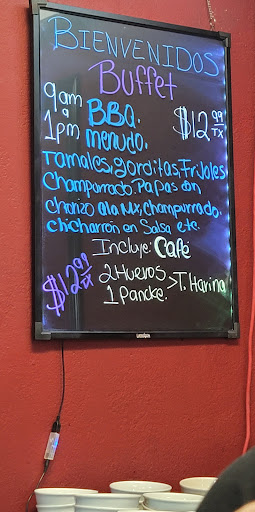 BIENVENIDOS
Buffet
9am a 1pm
BBQ.
menudo.
$12.99 +TX
Tamales, gorditas, Frijoles
Champurrado. Papas con
chorizo a la Mx, champurrado.
chicharron en Salsa etc.
Incluye: Café
$12.99 +TX
2 Huevos > T. Harina
1 Pancke.